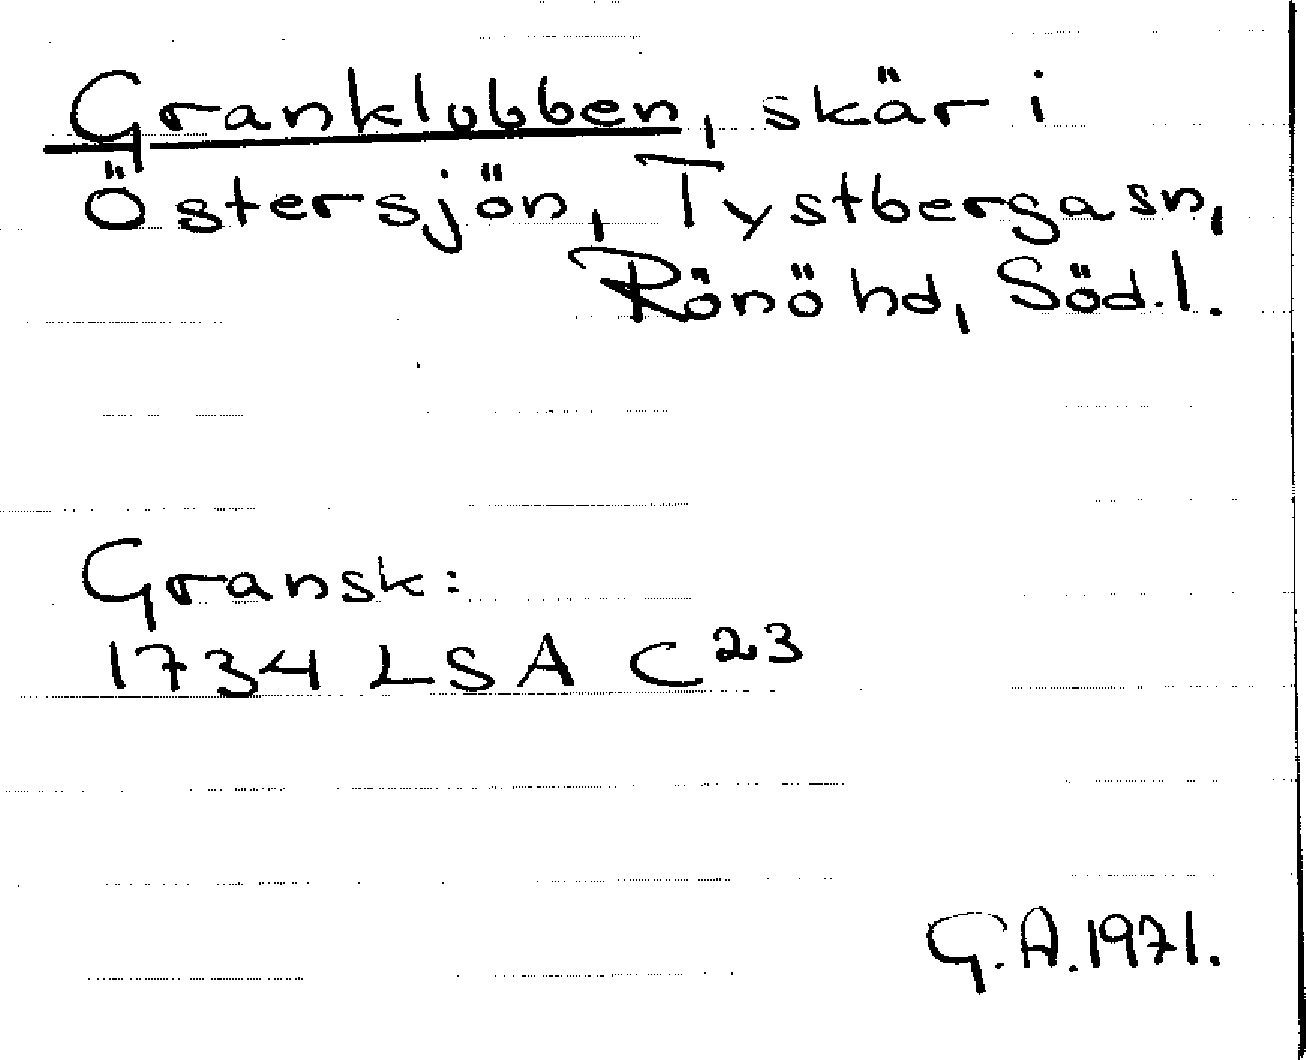 Granklubben, skär i
Östersjön, Tystberga sn,
Rönö hd, Söd.l.
Gransk:
1734 LSA C23
G.A.1971.